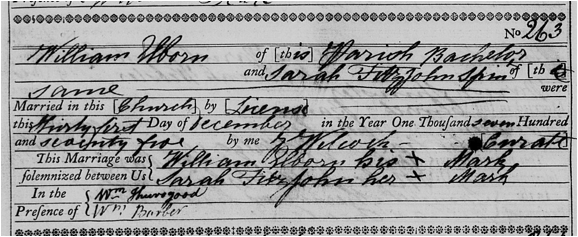 No 263
William Elborn of [this] Parish Bachelor
and Sarah Fitzjohn Spin of [the
same were
Married in this [Church] by [Licens
this thirty first Day of december in the Year One Thousand seven Hundred
and seventy five by me J Wilcock Curate
This Marriage was William Elborn his X Mark
solemnized between Us Sarah Fitzjohn her X Mark
In the Wm Thurogood
Presence of Wm Barber